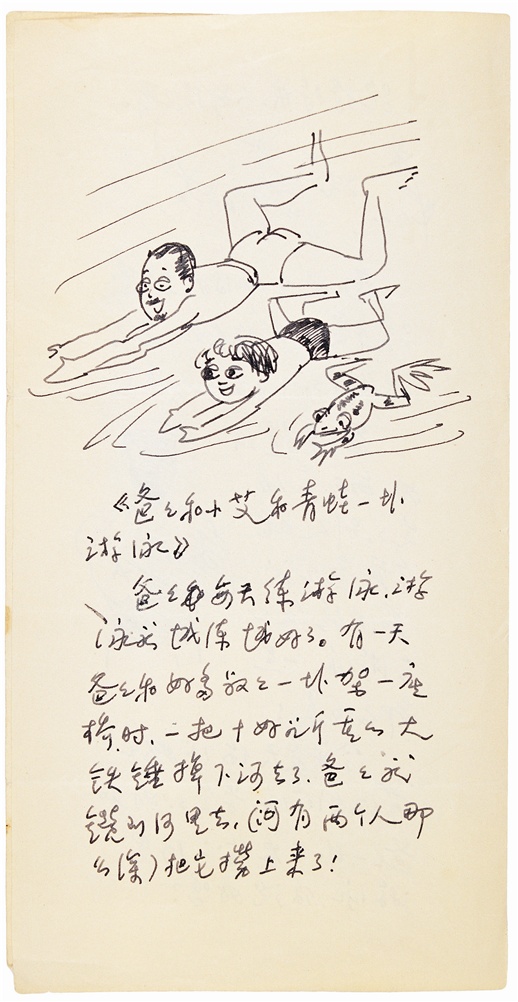 《爸々和小艾和青蛙一块
游泳》
爸々每天练游泳.游
泳就越练越好了。有一天
爸々和好多叔々一块架一座
桥.时.一把十好几斤重的大
铁锤掉下河去了.爸々就
鑽到河里去.(河有两个人那
么深)把它撈上来了!